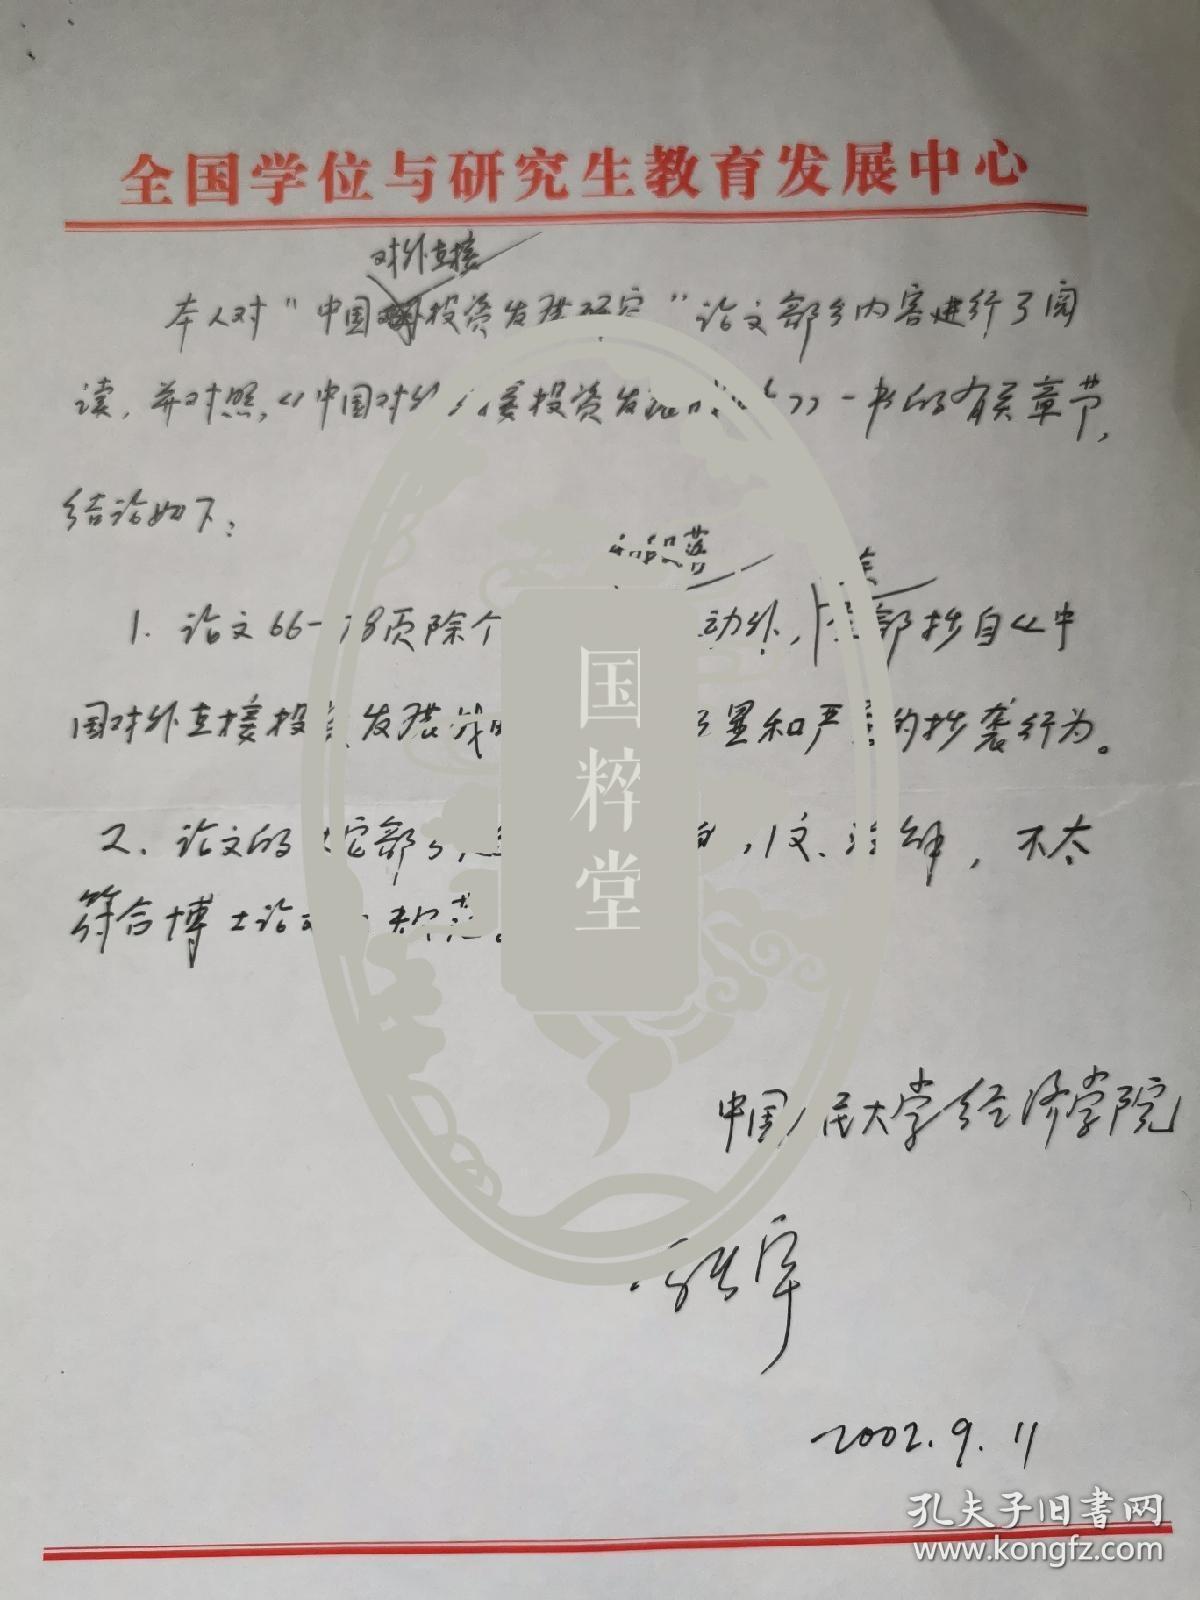 全国学位与研究生教育发展中心
对外直接
本人对"中国投资发展研究"论文部分内容进行了阅
读，并对照《中国对外直接投资发展战略》一书的有关章节，
结论如下：
和段落
1. 论文66-78页除个动外，全部抄自《中
国对外直接投资发展战略和严重的抄袭行为。
2. 论文的其它部分，不太
符合博士论文的规范。
中国人民大学经济学院
张宇
2002.9.11
国粹堂
孔夫子旧书网
www.kongfz.com